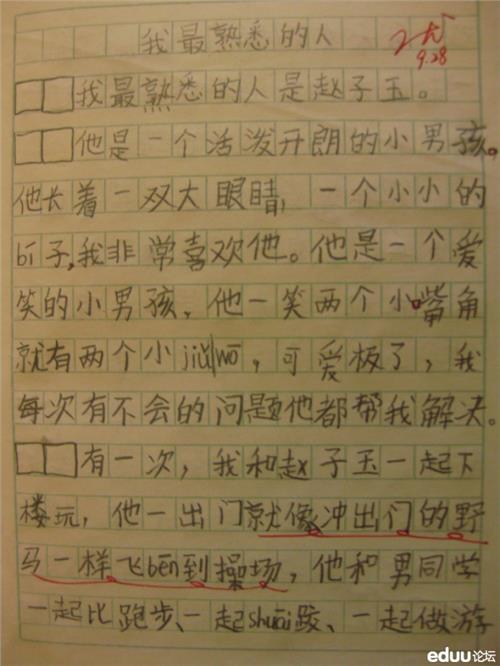 我最熟悉的人
9.28
我最熟悉的人是赵子玉。
他是一个活泼开朗的小男孩。
他长着一双大眼睛,一个小小的
bí子,我非常喜欢他。他是一个爱
笑的小男孩,他一笑两个小嘴角
就有两个小jiǔwō,可爱板了,我
每次有不会的问题他都帮我解决。
有一次,我和赵子玉一起下
楼玩,他一出门就像冲出门的野
马一样飞bēn到操场,他和男同学
一起比跑步、一起shuāi跤、一起做游
eduu论坛